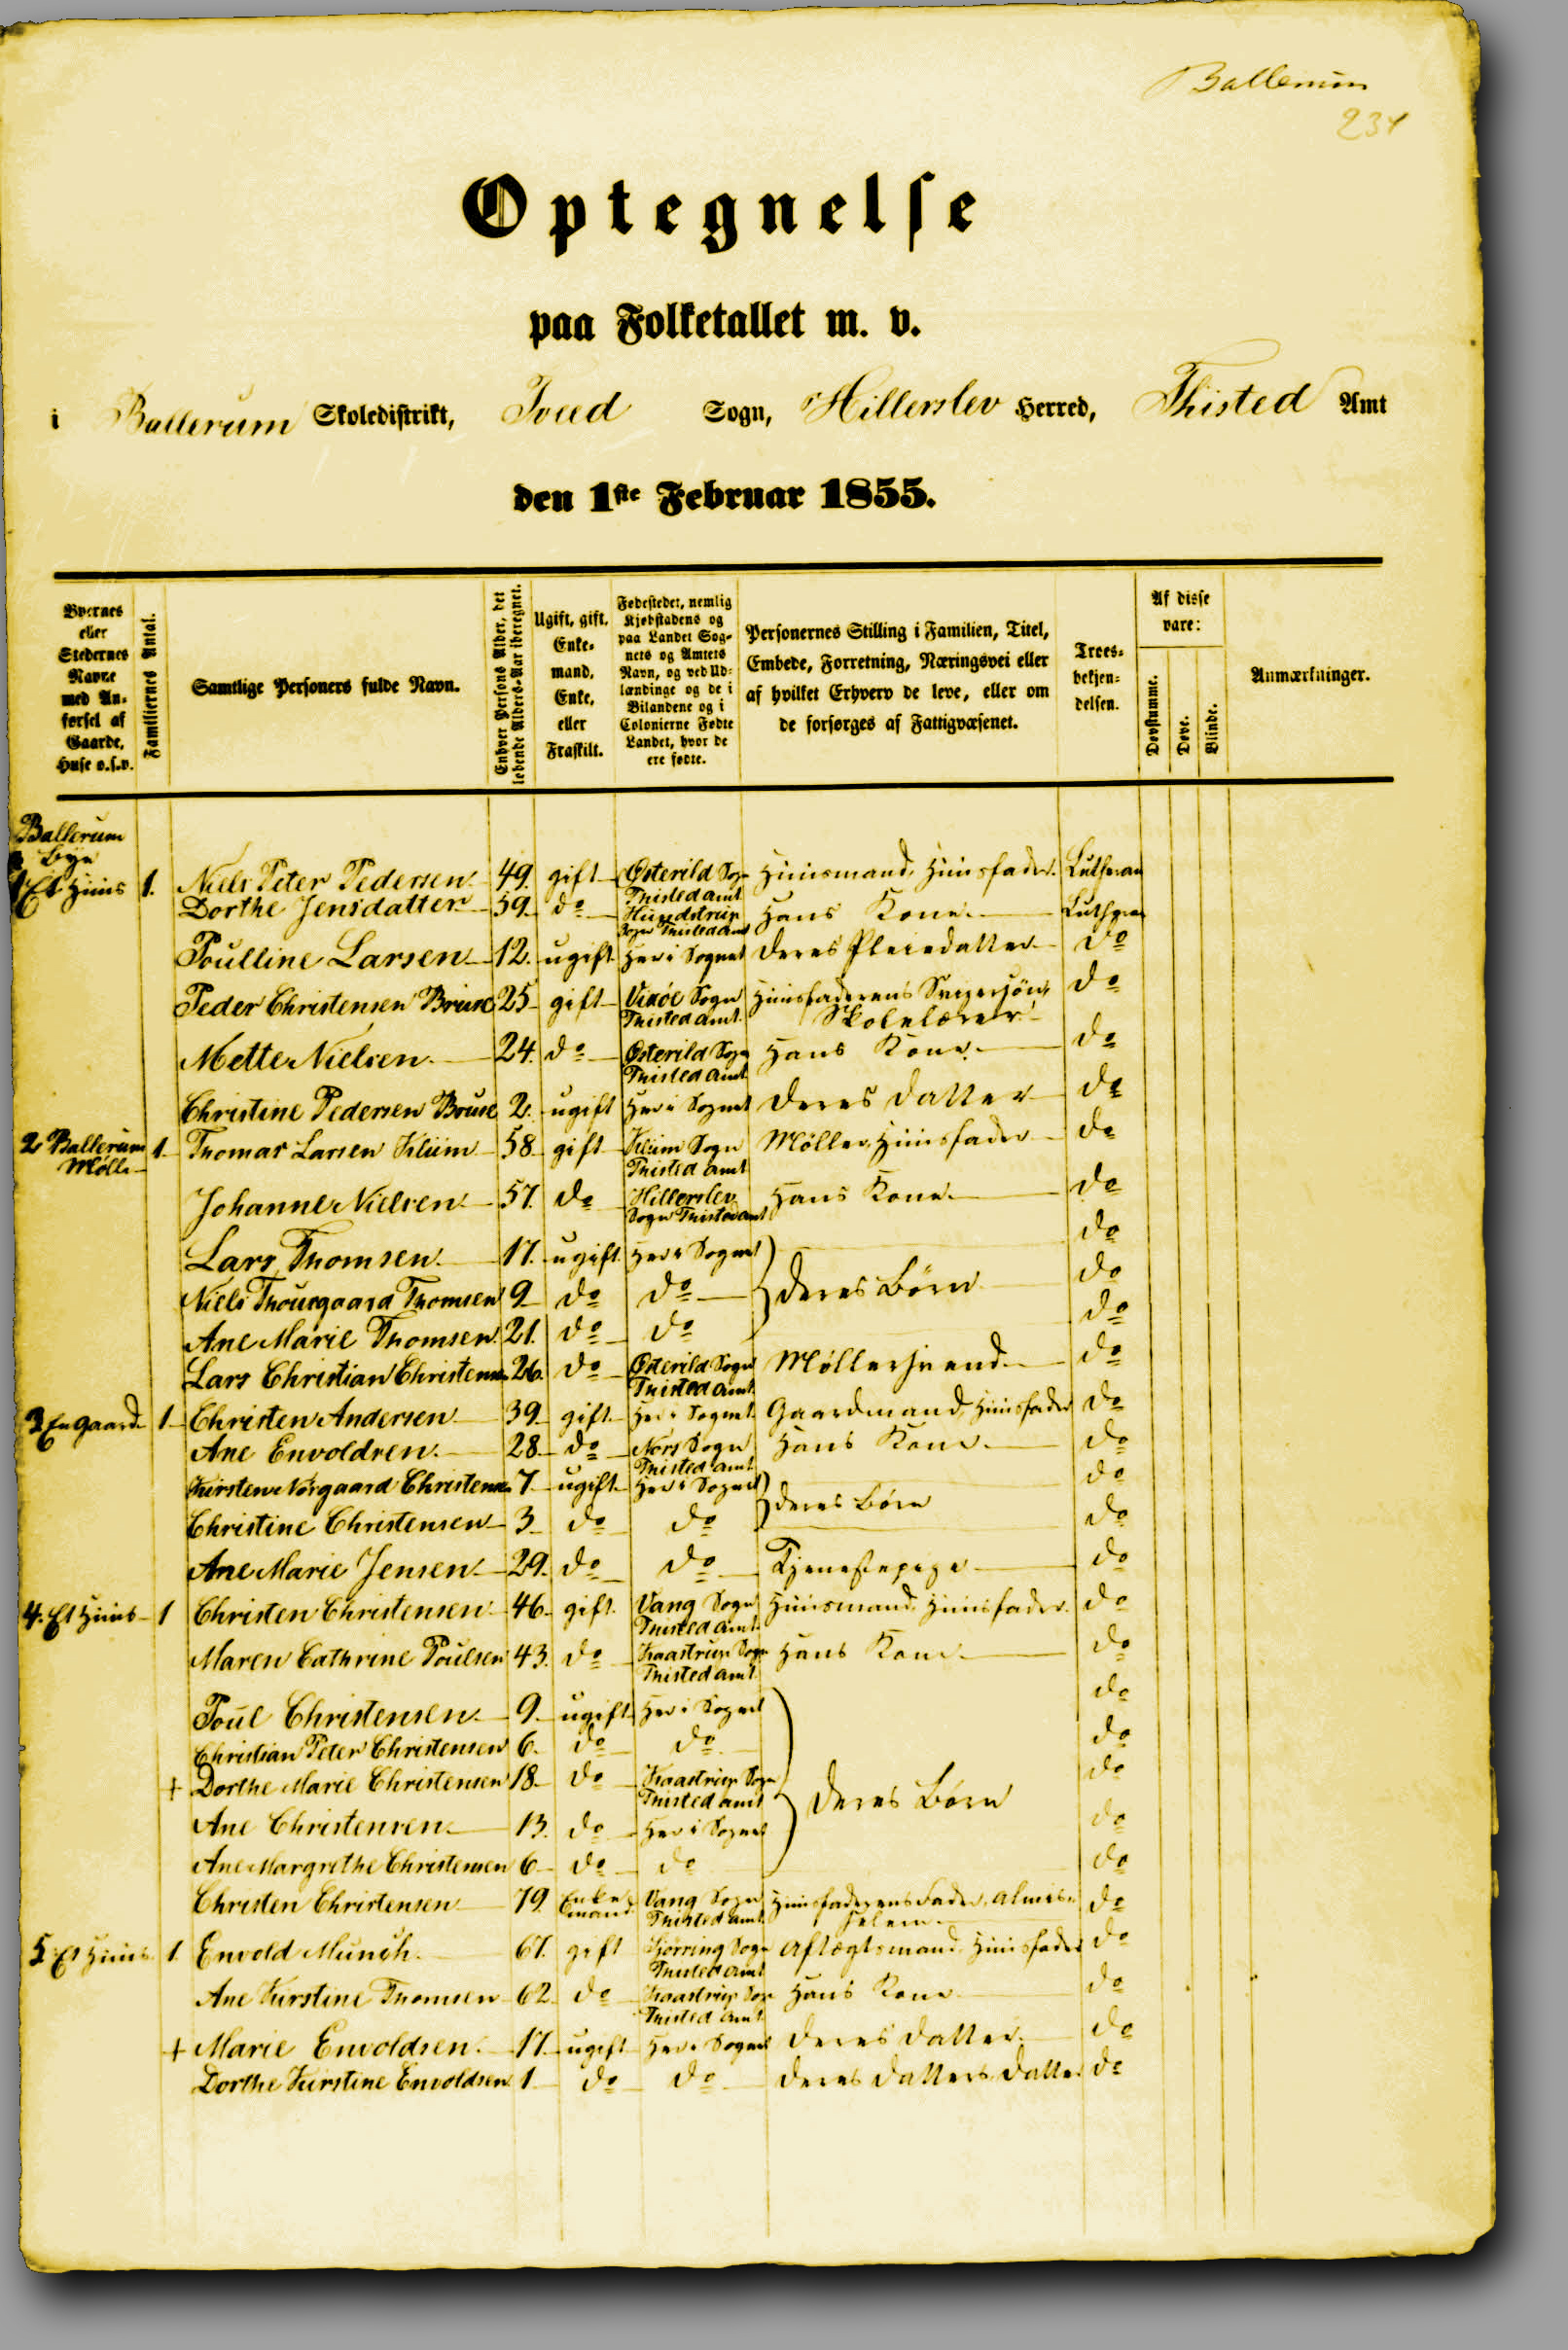 Ballerum
234
Optegnelſe
paa Folketallet m. v.
i Ballerum Skoledistrikt, Tved Sogn, Hillerslev Herred, Thisted Amt
den 1ste Februar 1855.
Byernes eller Stedernes Navne med Anførsel af Gaarde, Huse o.s.v.
Familiernes Antal.
Samtlige Personers fulde Navn.
Enhver Persons Alder, det løbende Alders-Aar iberegnet.
Ugift, gift, Enkemand, Enke, eller Fraskilt.
Fødestedet, nemlig Kjøbstadens og paa Landet Sognets og Amtets Navn, og ved Udlændinge og de i Bilandene og i Colonierne Fødte Landet, hvor de ere fødte.
Personernes Stilling i Familien, Titel, Embede, Forretning, Næringsvei eller af hvilket Erhverv de leve, eller om de forsørges af Fattigvæsenet.
Troesbekjendelsen.
Af disse vare:
Døvstumme.
Døve.
Blinde.
Anmærkninger.
Ballerum Bye
1 Et Huus 1. Niels Peter Pedersen 49. gift Østerild Sogn Thisted Amt Huusmand, Huusfader. Lutheran
Dorthe Jensdatter 59. do Hundstrup Sogn Thisted Amt Hans Kone Luthera
Poulline Larsen 12. ugift Her i Sognet Deres Pleiedatter do
Peder Christensen Bruse 25 gift Vixøe Sogn Thisted Amt. Huusfaderens Svigersøn, Skolelærer do
Mette Nielsen 24. do Østerild Sogn Thisted Amt Hans Kone do
Christine Pedersen Bruse 2. ugift Her i Sognet Deres Datter do
2 Ballerum Mølle 1 Thomas Larsen Klim 58 gift Klim Sogn Thisted Amt Møller, Huusfader do
Johanne Nielsen 57. do Hillerslev Sogn Thisted Amt Hans Kone do
Lars Thomsen 17. ugift Her i Sognet do
Niels Thousgaard Thomsen 9 do do Deres Børn do
Ane Marie Thomsen 21. do do do
Lars Christian Christensen 26 do Østerild Sogn Thisted Amt. Møllersvend do
3 En Gaard 1 Christen Andersen 39 gift Her i Sognet Gaardmand, Huusfader do
Ane Envoldsen 28 do Nors Sogn Thisted Amt Hans Kone do
Kirsten Nørgaard Christensen 7 ugift Her i Sognet do
Christine Christensen 3 do do Deres Børn do
Ane Marie Jensen 29. do do Tjenestepige do
4. Et Huus 1 Christen Christensen 46 gift Vang Sogn Thisted Amt. Huusmand, Huusfader. do
Maren Cathrine Poulsen 43. do Kaastrup Sogn Thisted Amt Hans Kone do
Poul Christensen 9 ugift Her i Sognet do
Christian Peter Christensen 6. do do do
+ Dorthe Marie Christensen 18 do Kaastrup Sogn Thisted Amt Deres Børn do
Ane Christensen 13. do Her i Sognet do
Ane Margrethe Christensen 6 do do do
Christen Christensen 79 Enkemand Vang Sogn Thisted Amt Huusfaderens Fader, do
5 Et Huus 1. Envold Munch 67. gift Hjørring Sogn Thisted Amt Aftægtsmand, Huusfader do
Ane Kirstine Thomsen 62 do Kaastrup Sogn Thisted Amt Hans Kone do
+ Marie Envoldsen 17 ugift Her i Sognet Deres Datter do
Dorthe Kirstine Envoldsen 1 do do Deres Datters Datter do